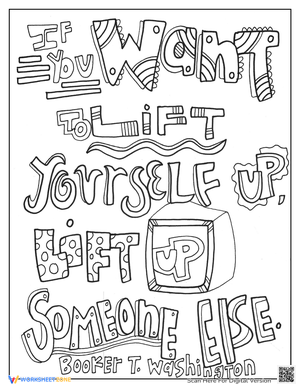 IF
YOU WANT
TO LIFT
YOURSELF UP,
LIFT UP
SOMEONE ELSE.
BOOKER T. WASHINGTON
WORKSHEETZONE
Scan Here For Digital Version